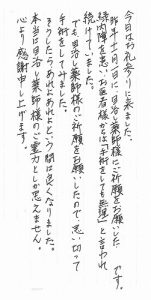 今日はお礼参りに来ました。
昨年十二月二日に、目治し薬師様にご祈願をお願いした
です。
緑内障を患い、お医者様からは「手術をしても無理」と言われ
続けていました。
でも目治し薬師様のご祈願をお願いしたので、思い切って
手術をしてみました。
そうしたらあれよあれよという間に良くなりました。
本当に目治し薬師様のご霊力としか思えません。
心より感謝申し上げます。